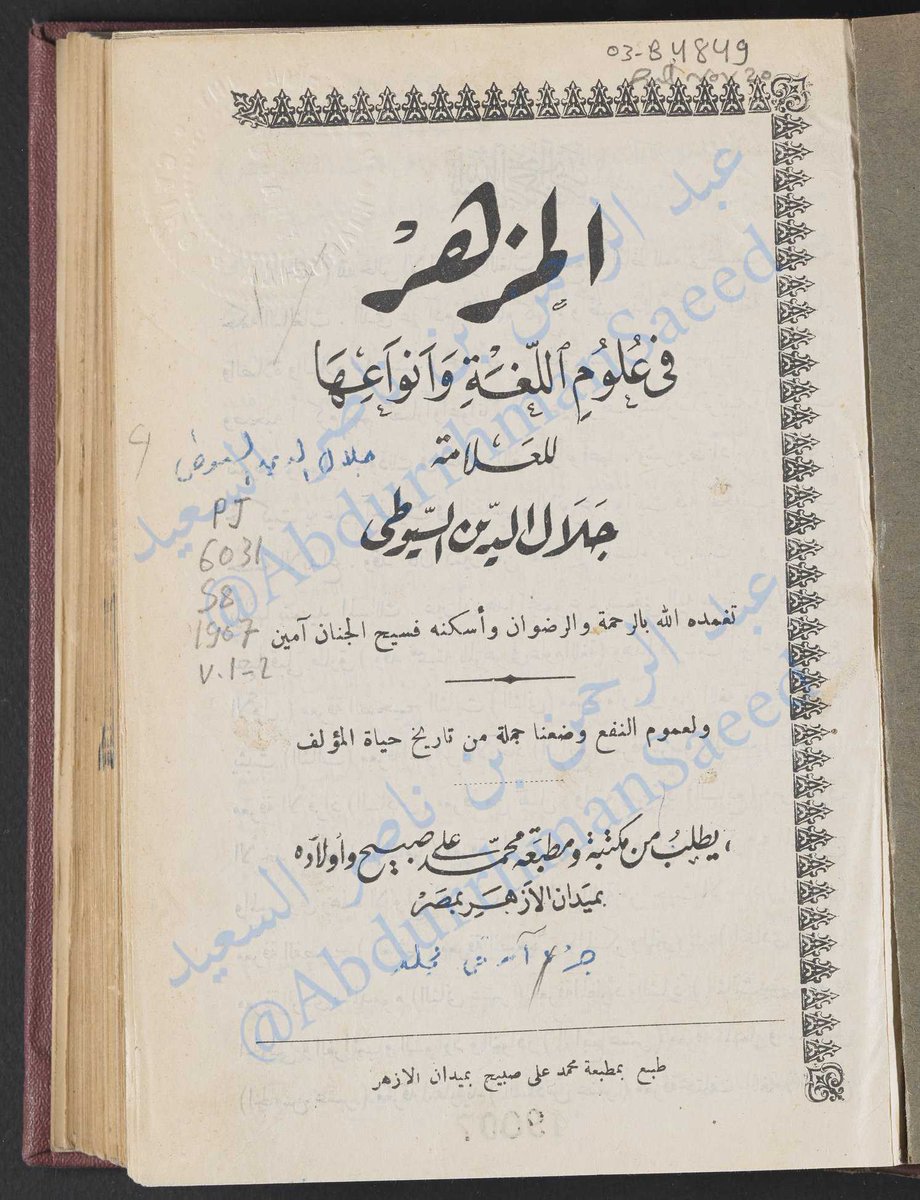 03-B4849
المزهر
فى عُلُومِ اللُّغَةِ وَأَنوَاعِهَا
للعَلامة
جَلَال الدِّين السّيُوطى
جلال الدين السيوطي
PJ
6031
S8
1907
v.1-2
تغمده الله بالرحمة والرضوان وأسكنه فسيح الجنان آمين
ولعموم النفع وضعنا جملة من تاريخ حياة المؤلف
يطلبُ من مكتبة ومطبعة محمد على صبيح وأولاده
بميدان الازهر بمصر
طبع بمطبعة محمد على صبيح بميدان الازهر
عبد الرحمن بن ناصر السعيد
@AbdurrhmanSaeed
عبد الرحمن بن ناصر السعيد
@AbdurrhmanSaeed